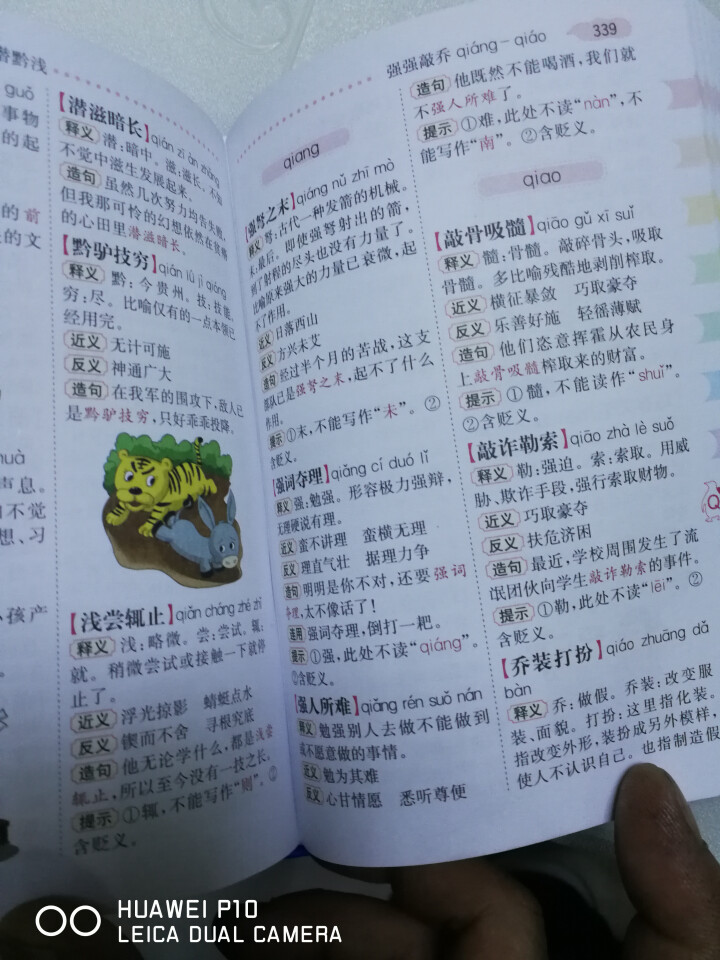 潜黔浅
guǒ
事物
的起
的前
的文
huà
声息。
不觉
想、习
小孩产
【潜滋暗长】qián zī àn zhǎng
释义 潜:暗中。滋:滋长。不知
不觉中滋生发展起来。
造句 虽然几次努力均告失败,
但我那可怜的幻想依然在贫瘠
的心田里潜滋暗长。
【黔驴技穷】qián lǘ jì qióng
释义 黔:今贵州。技:技能。
穷:尽。比喻仅有的一点本领已
经用完。
近义 无计可施
反义 神通广大
造句 在我军的围攻下,敌人已
是黔驴技穷,只好乖乖投降。
【浅尝辄止】qiǎn cháng zhé zhǐ
释义 浅:略微。尝:尝试。辄:
就。稍微尝试或接触一下就停
止了。
近义 浮光掠影 蜻蜓点水
反义 锲而不舍 寻根究底
造句 他无论学什么,都是浅尝
辄止,所以至今没有一技之长。
提示 ①辄,不能写作“则”。②
含贬义。
强强敲乔 qiáng-qiáo 339
qiang
【强弩之末】qiáng nǔ zhī mò
释义 弩:古代一种发箭的机械。
末:最后。即使强弩射出的箭,
到了射程的尽头也没有力量了。
比喻原来强大的力量已衰微,起
不了作用。
近义 日落西山
反义 方兴未艾
造句 经过半个月的苦战,这支
部队已是强弩之末,起不了什么
作用。
提示 ①末,不能写作“未”。②
含贬义。
【强词夺理】qiǎng cí duó lǐ
释义 强:勉强。形容极力强辩,
无理硬说有理。
近义 蛮不讲理 蛮横无理
反义 理直气壮 据理力争
造句 明明是你不对,还要强词
夺理,太不像话了!
连用 强词夺理,倒打一耙。
提示 ①强,此处不读“qiáng”。
②含贬义。
【强人所难】qiǎng rén suǒ nán
释义 勉强别人去做不能做到
或不愿意做的事情。
近义 勉为其难
反义 心甘情愿 悉听尊便
造句 他既然不能喝酒,我们就
不强人所难了。
提示 ①难,此处不读“nàn”,不
能写作“南”。②含贬义。
qiao
【敲骨吸髓】qiāo gǔ xī suǐ
释义 髓:骨髓。敲碎骨头,吸取
骨髓。多比喻残酷地剥削榨取。
近义 横征暴敛 巧取豪夺
反义 乐善好施 轻徭薄赋
造句 他们恣意挥霍从农民身
上敲骨吸髓榨取来的财富。
提示 ①髓,不能读作“shuǐ”。
②含贬义。
【敲诈勒索】qiāo zhà lè suǒ
释义 勒:强迫。索:索取。用威
胁、欺诈手段,强行索取财物。
近义 巧取豪夺
反义 扶危济困
造句 最近,学校周围发生了流
氓团伙向学生敲诈勒索的事件。
提示 ①勒,此处不读“lēi”。②
含贬义。
【乔装打扮】qiáo zhuāng dǎ
bàn
释义 乔:做假。乔装:改变服
装、面貌。打扮:这里指化装。
指改变外形,装扮成另外模样,
使人不认识自己。也指制造假
Q
HUAWEI P10
LEICA DUAL CAMERA